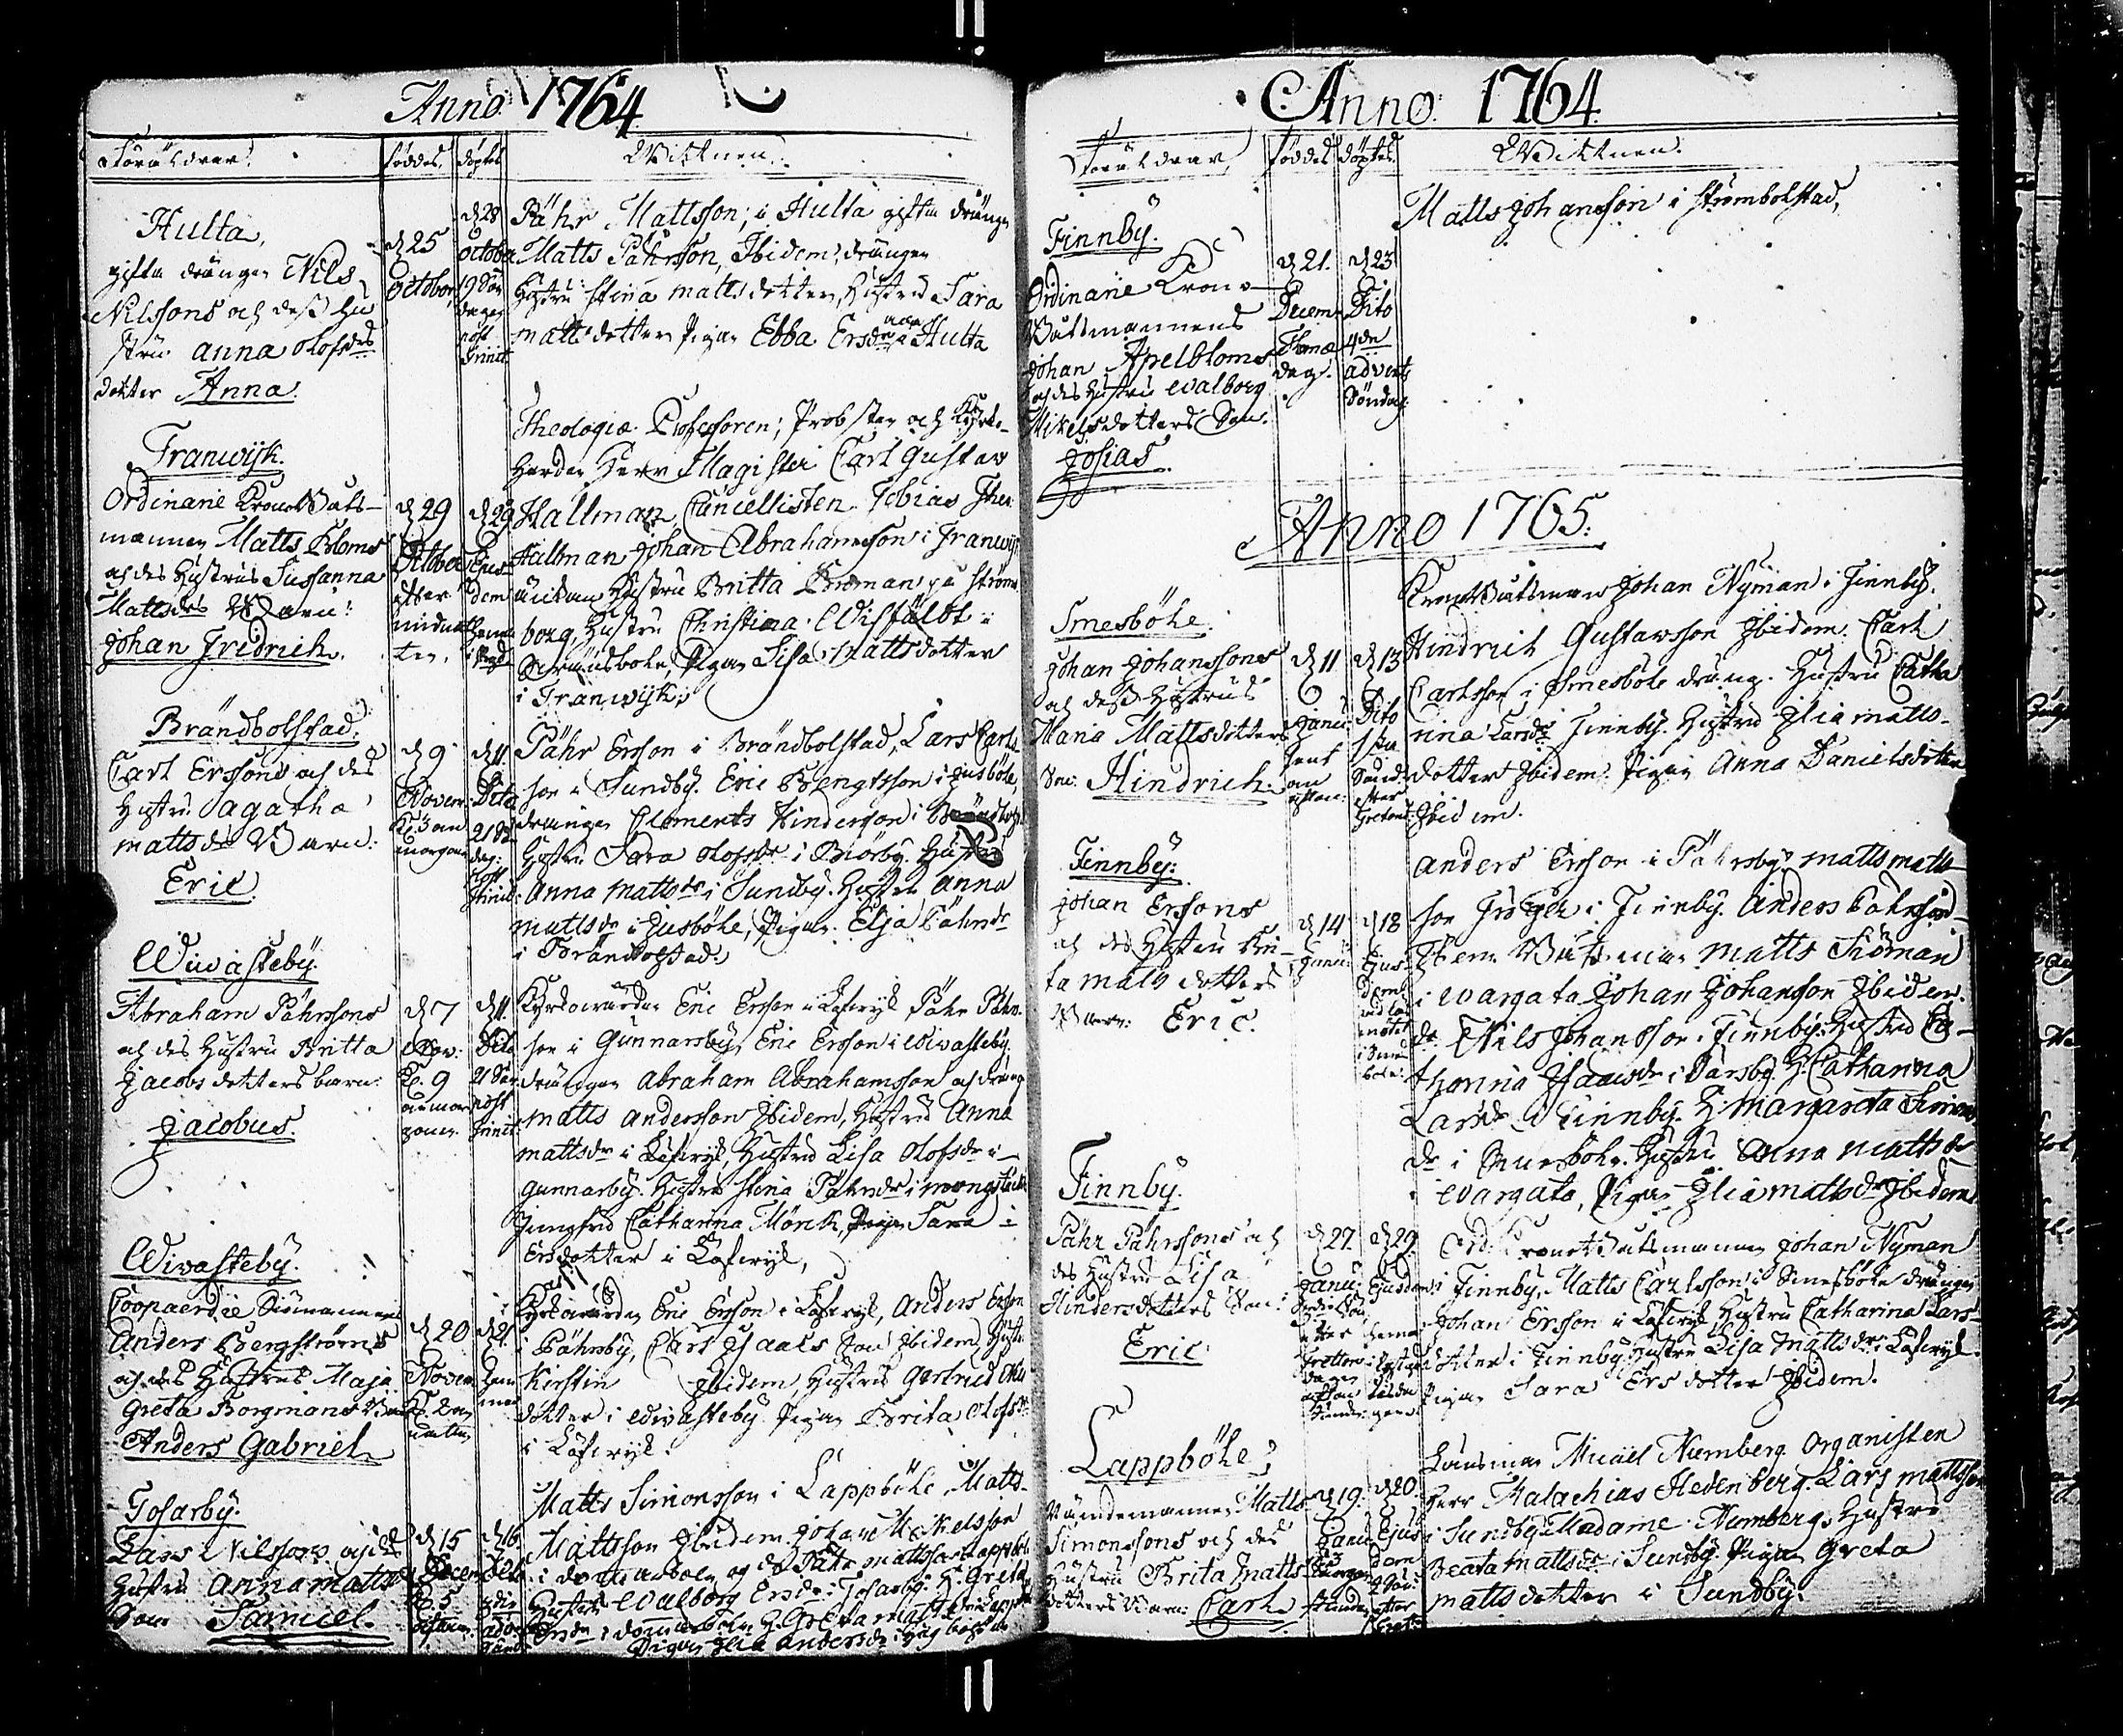 Anno 1764
Föräldrar. föddes döptes Wittnen.
Hulta,
gifta drängen Nils
Nilssons och dess hu
stru anna olofs
dotter Anna.
d 25
October
d 28
October
19 Sön
dagen
post
Trinit.
Pähr Mattsson, i Hulta gifta drängen
Matts Pährson, Ibidem, drängen
Hustru Stina matts dotter, Hustru Sara
matts dotter Pigan Ebba Ersdr i Hulta
Tranwijk.
Ordinarie Krono Båts-
mannen Matts Bloms
och des Hustrus Sussanna
Mattsdrs Barn:
Johan Fridrich.
d 29
October
efter
midnat
ten.
d 29
Ejus
dem
Theologiæ Professoren, Probsten och Kyrko-
Herden Herr Magister Carl Gustav
Hallman Cancellisten Tobias Ther
Hallman Johan Abrahamsson i Tranwijk
Hustru Britta Broman på Ström
borg, Hustru Christina
Pigan Lisa Mattsdotter
i Tranwijk.
Brändbolstad.
Carl Erssons och des
Hustru agatha
mattsdrs Barn:
Eric
d 9
Novem.
Kl. 3 om
morgon
d 11.
Dito
21 Sön
dag.
post
Trinit.
Pähr Ersson i Brändbolstad, Lars Carls
son i Sundby. Eric Bengtsson i
drängen Clements Hinderson i
Hustru Sara olofsdr i Hustru
Anna Mattsdr i Sundby. Hustru Anna
mattsdr i Pigan Elja Pährsdr
i Brändbolstad.
Wiwasteby.
Abraham Pährssons
och des Hustru Britta
Jacobs dotters barn:
Jacobus.
d 7
Nov:
Kl. 9
om mor
gonen
d 11.
Dito
21 Sön
post
Trinit:
Kyrkowärden Eric Ersson i Löfwijk Pähr Pährs
son i Gunnarsby, Eric Ersson i Wiwasteby,
drängen Abraham Abrahamsson och dräng
Matts andersson Ibidem, Hustru Anna
mattsdr i Löfwijk, Hustru Lisa Olofsdr i
Gunnarby. Hustru Stina Pährsdr i
Jungfru Catharina Mörck, Pigan Sara
Ersdotter i Löfwijk,
Wiwasteby.
Coopaerdie Siömannen
Anders Bergströms
och des Hustrus Maja
Greta Borgmans Barn
Anders Gabriel
d 20
Novem
d 21.
Kyrkowärden Eric Ersson i Löfwijk, Anders Ersson
i Pährsby, Lars Isaacs Son Ibidem, Hustru
Kirstin Ibidem, Hustru Gertrud
dotter i Wiwasteby. Pigan Brita Olofsdr
i Löfwijk.
Tosarby.
Lars Nilssons och des
Hustru Anna Matts
Son Samuel.
d 15
Decem
Kl. 5
d 16.
Dito
3die
adve
Matts Simonsson i Lappböhle, Matts
Mattsson Ibidem. Johan Mickelsson
Hustru Walborg Ersdr i Tosarby. H. Greta
Pigan Andersdr
Anno 1764
Föräldrar, föddes döptes. Wittnen.
Finnby.
Ordinarie Krono
Båtsmannens
Johan Apelbloms
och des Hustru Walborg
Mikels dotters Son.
Josias
d 21.
Decem
dag.
d 23
Dito
4de
advents
Söndag
Matts Johansson i Strömbolstad,
Anno 1765.
Smesböhle
Johan Johanssons
och dess Hustrus
Maria Mattsdotters
Son: Hindrich
d 11
Janu:
sent
om
afton:
d 13
Dito
1sta
Sönd:
efter
Krono Båtsman Johan Nyman i Finnby.
Hindrich Gustavsson Ibidem. Carl
Carlsson i Smesböle dräng. Hustru Catha
rina Larsdr Finnby. Hustru Matts
dotter Ibidem. Pigan Anna Danielsdotter
Ibidem.
Finnby:
Johan Erssons
och des Hustru
dotters
Barn: Eric.
d 14
Janu:
d 18
Ejus
dem
Anders Ersson i Pährsby. Matts Matts
son i Finnby. Anders Pährsson
Ibidem. Båtsman Matts Siöman
i Wargata Johan Johansson Ibidem.
Nils Johansson i Finnby. Hustru Ca
tharina Isaacsdr i H. Catharina
Larsdr i Finnby. H. Margareta Simons
dr i Hustru Anna Mattsdr
i Wargata, Pigan mattsdr Ibidem
Finnby.
Pähr Pährssons och
des Hustru Lisa
Hindersdotters Son:
Eric
d 27.
Janu:
d 29.
Ejusdem
Ord: Krono Båtsmannen Johan Nyman
i Finnby, Matts Carlsson i Smesböle drängen
Johan Ersson i Löfwijk, Hustru Catharina Lars
dotter i Finnby. Hustru Lisa Mattsdr i Löfwijk.
Pigan Sara Ersdotter Ibidem.
Lappböhle,
Nämdemannen Matts
Simonssons och des
Hustru Brita Matts
dotters Barn: Carl
d 19.
Janu
d 20.
Ejus
dem
2 Sön:
efter
Länsman Micael Numberg Organisten
Herr Malachias Hedenberg. Lars Mattsson
i Sundby. Madame Numberg. Hustru
Beata Mattsdr i Sundby. Pigan Greta
matts dotter i Sundby.